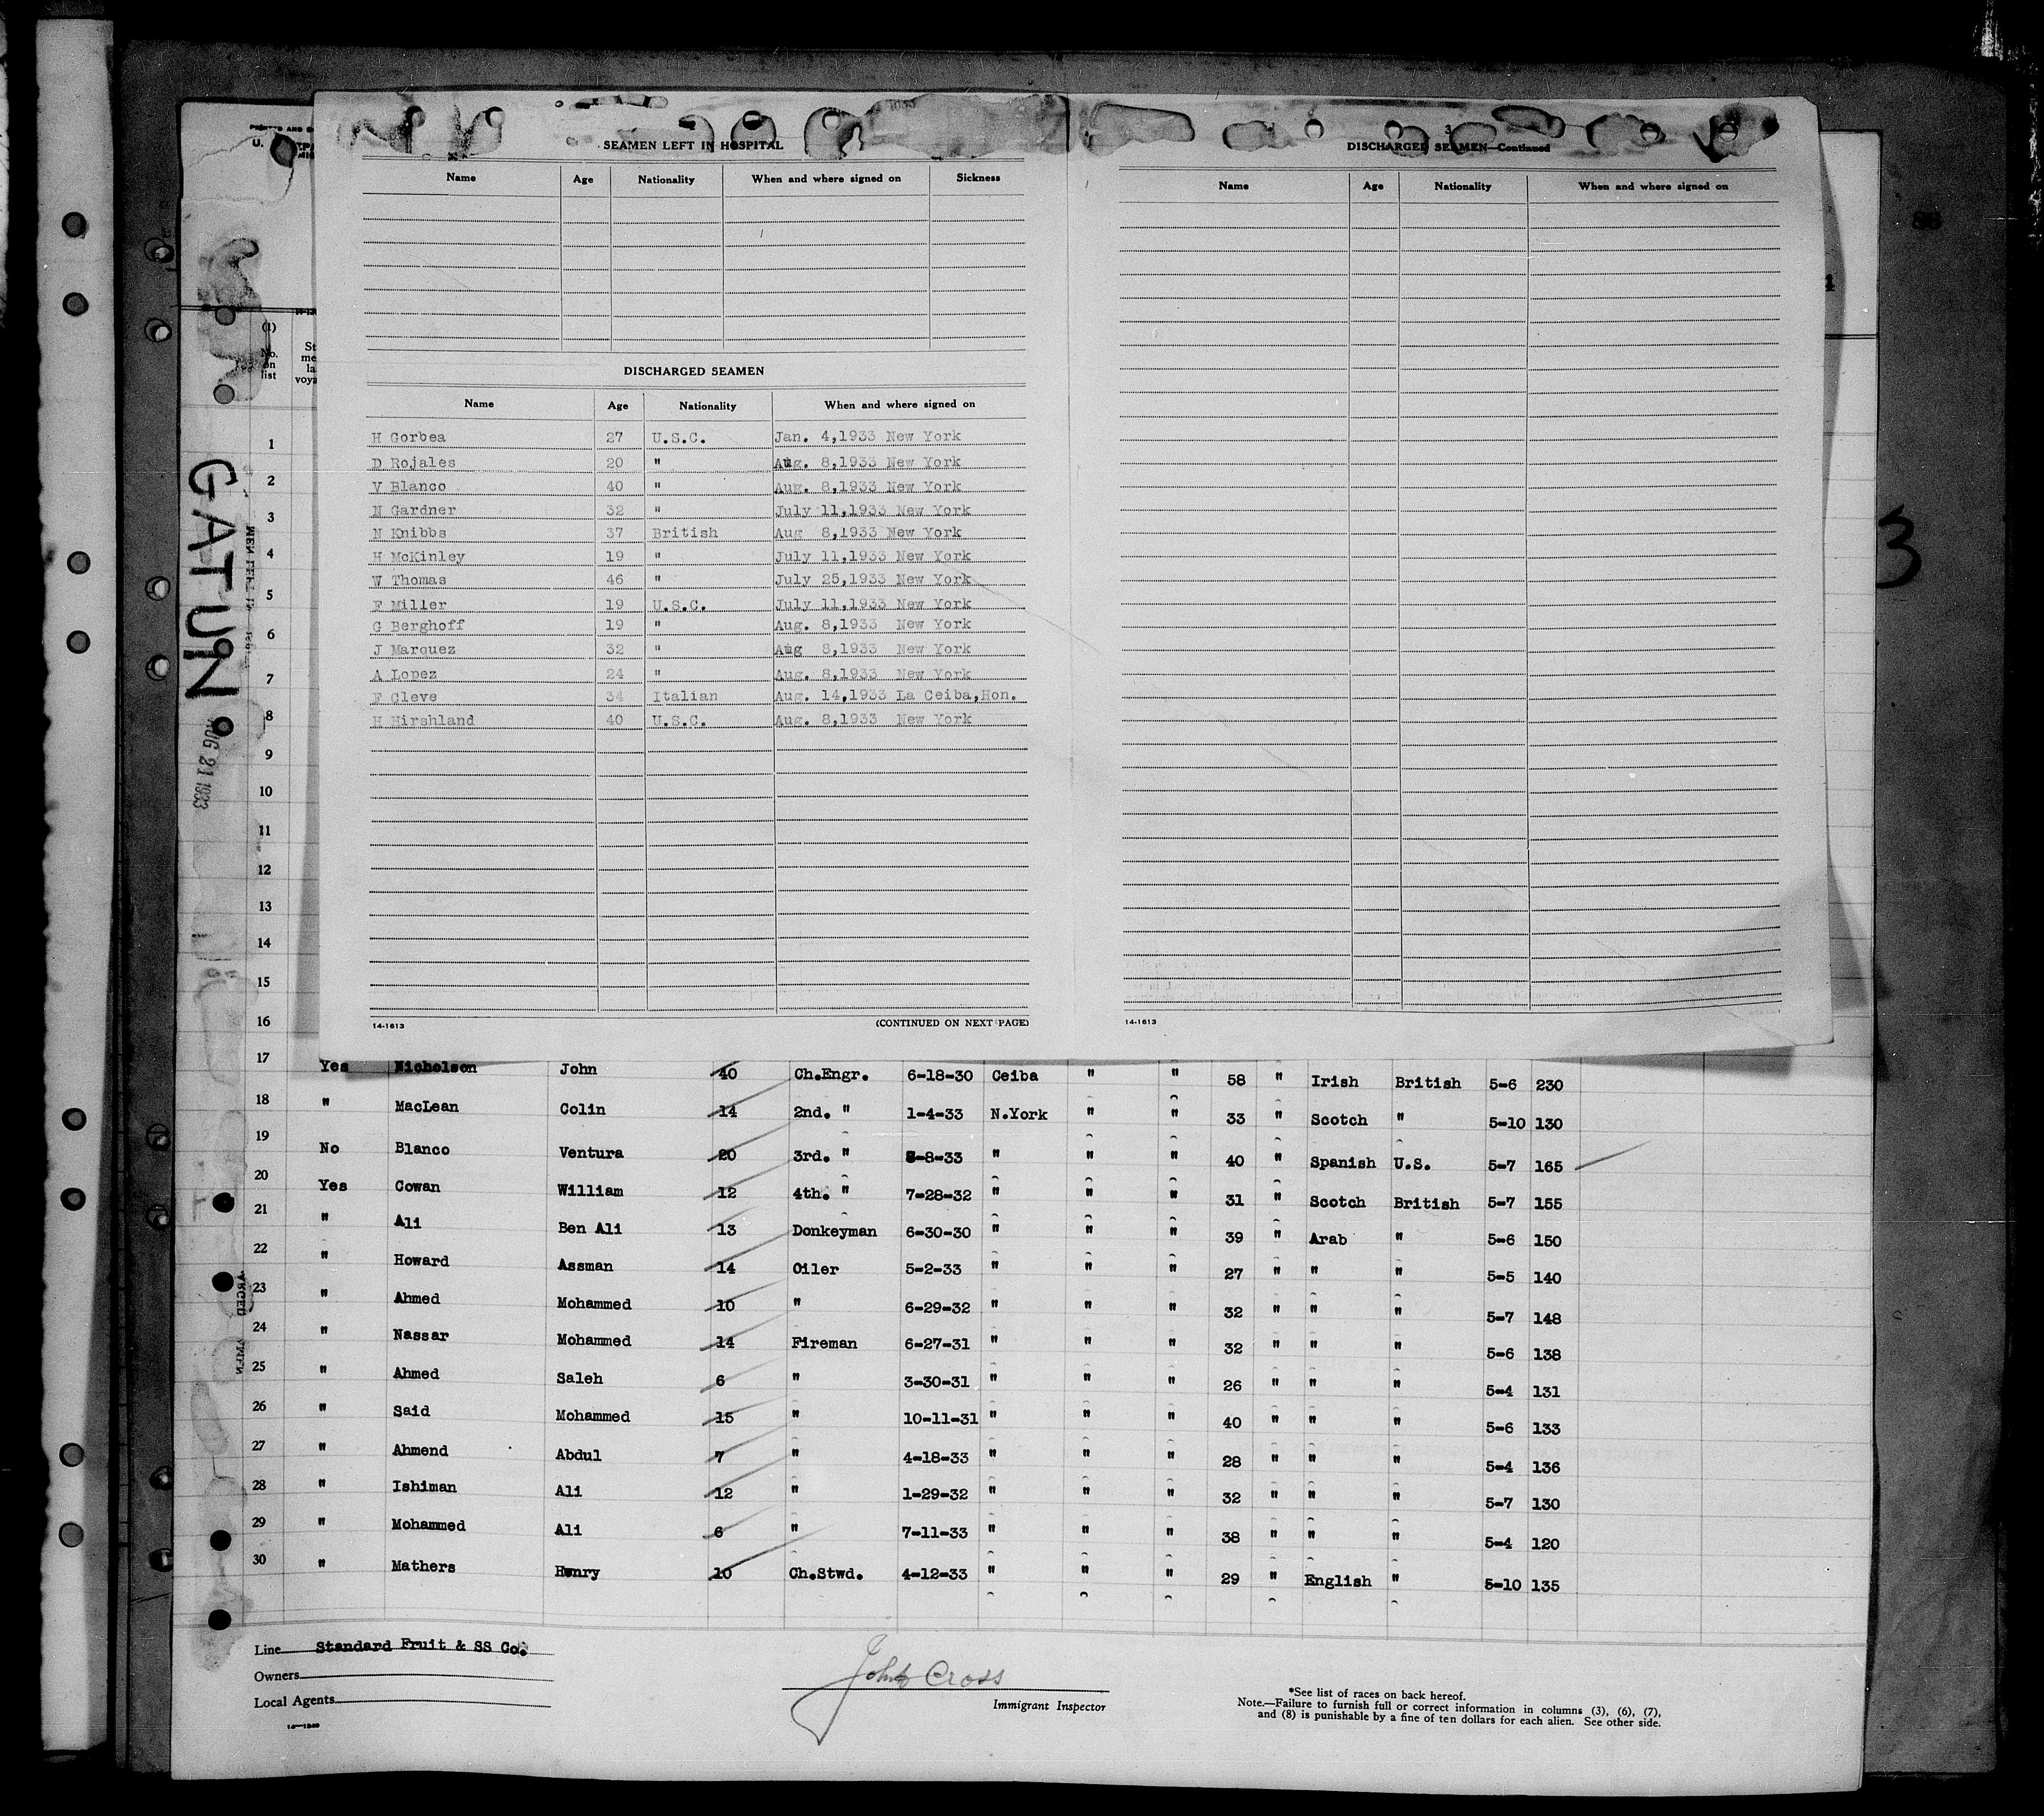 SEAMEN LEFT IN HOSPITAL
Name Age Nationality When and where signed on Sickness
DISCHARGED SEAMEN
Name Age Nationality When and where signed on
H Gorbea 27 U.S.C. Jan. 4,1933 New York
D Rojales 20 " Aug. 8,1933 New York
V Blanco 40 " Aug. 8,1933 New York
N Gardner 32 " July 11,1933 New York
N Knibbs 37 British Aug 8,1933 New York
H McKinley 19 " July 11,1933 New York
W Thomas 46 " July 25,1933 New York
F Miller 19 U.S.C. July 11,1933 New York
G Berghoff 19 " Aug. 8,1933 New York
J Marquez 32 " Aug 8,1933 New York
A Lopez 24 " Aug. 8,1933 New York
F Cleve 34 Italian Aug. 14,1933 La Ceiba,Hon.
H Hirshland 40 U.S.C. Aug. 8,1933 New York
14-1613 (CONTINUED ON NEXT PAGE)
3
DISCHARGED SEAMEN—Continued
Name Age Nationality When and where signed on
14-1613
3
GATUN
AUG 21 1933
(1)
No.
on
list
1
2
3
4
5
6
7
8
9
10
11
12
13
14
15
16
17 Yes Nicholson John 40 Ch.Engr. 6-18-30 Ceiba " " 58 " Irish British 5-6 230
18 " MacLean Colin 14 2nd. " 1-4-33 N.York " " 33 " Scotch " 5-10 130
19 No Blanco Ventura 20 3rd. " 8-8-33 " " " 40 " Spanish U.S. 5-7 165
20 Yes Cowan William 12 4th. " 7-28-32 " " " 31 " Scotch British 5-7 155
21 " Ali Ben Ali 13 Donkeyman 6-30-30 " " " 39 " Arab " 5-6 150
22 " Howard Assman 14 Oiler 5-2-33 " " " 27 " " " 5-5 140
23 " Ahmed Mohammed 10 " 6-29-32 " " " 32 " " " 5-7 148
24 " Nassar Mohammed 14 Fireman 6-27-31 " " " 32 " " " 5-6 138
25 " Ahmed Saleh 6 " 3-30-31 " " " 26 " " " 5-4 131
26 " Said Mohammed 15 " 10-11-31 " " " 40 " " " 5-6 133
27 " Ahmend Abdul 7 " 4-18-33 " " " 28 " " " 5-4 136
28 " Ishiman Ali 12 " 1-29-32 " " " 32 " " " 5-7 130
29 " Mohammed Ali 6 " 7-11-33 " " " 38 " " " 5-4 120
30 " Mathers Henry 10 Ch.Stwd. 4-12-33 " " " 29 " English " 5-10 135
Line Standard Fruit & SS Co.
Owners
Local Agents
John Cross
Immigrant Inspector
*See list of races on back hereof.
Note.—Failure to furnish full or correct information in columns (3), (6), (7),
and (8) is punishable by a fine of ten dollars for each alien. See other side.